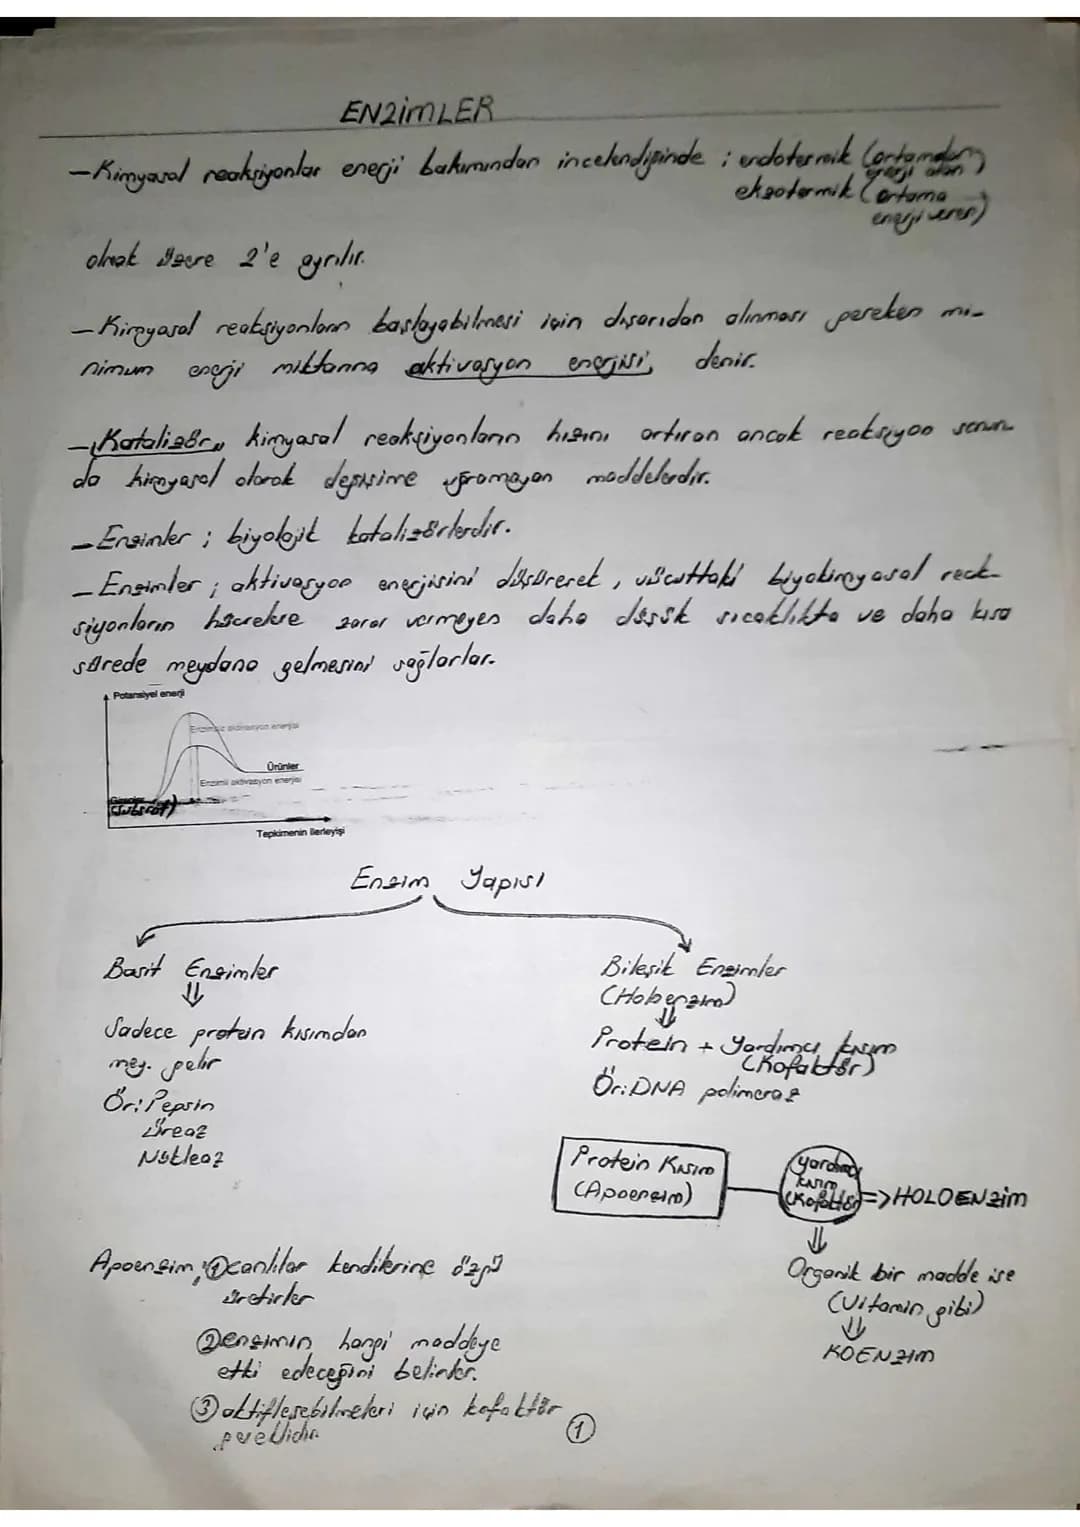 ENZİMLER
-Kimyasal reaksiyonlar enerji bakımından incelendiğinde ; endotermik (ortamdan enerji alan)
ekzotermik (ortama enerji veren)
olmak üzere 2'e ayrılır.
-Kimyasal reaksiyonların başlayabilmesi için dışarıdan alınması gereken mi-
nimum enerji miktarına aktivasyon enerjisi, denir.
-"Katalizör" kimyasal reaksiyonların hızını artıran ancak reaksiyon sonun-
da kimyasal olarak değişime uğramayan maddelerdir.
-Enzimler ; biyolojik katalizörlerdir.
-Enzimler ; aktivasyon enerjisini düşürerek, vücuttaki biyokimyasal reak-
siyonların hücrelere zarar vermeyen daha düşük sıcaklıkta ve daha kısa
sürede meydana gelmesini sağlarlar.
Potansiyel enerji
Enzimsiz aktivasyon enerjisi
Ürünler
Enzimli aktivasyon enerjisi
Girenler
(Substrat)
Tepkimenin ilerleyişi
Enzim Yapısı
Basit Enzimler
Sadece protein kısımdan
mey. gelir
Ör: Pepsin
Üreaz
Nükleaz
Bileşik Enzimler
(Holoenzim)
Protein + Yardımcı kısım
(Kofaktör)
Ör: DNA polimeraz
Protein Kısım
(Apoenzim)
yardımcı
kısım
(Kofaktör)
=> HOLOENZİM
Organik bir madde ise
(Vitamin gibi)
KOENZİM
Apoenzim; ① canlılar kendilerine özgü
üretirler
② enzimin hangi maddeye
etki edeceğini belirler.
③ aktifleşebilmeleri için kofaktör
gereklidir.
①